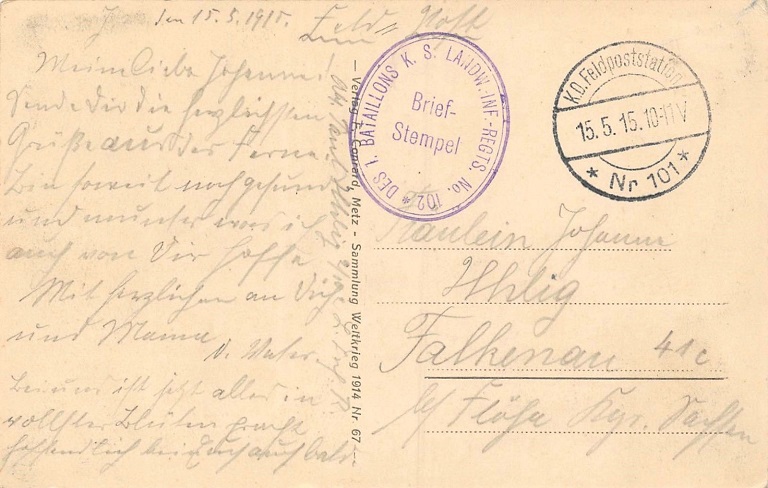 den 15.5.1915.
Feld= Post
Meine liebe Johanne!
Sende Dir die herzlichsten
Grüße aus der Ferne.
Bin soweit noch gesund
und munter was ich
auch von Dir hoffe
Mit herzlichen an Dich
und Mama
D. Vater.
Bei uns ist jetzt alles in
vollster Blüten pracht
hoffendlich bei Euch auch bald.
— Verlag E. Conrard, Metz - Sammlung Weltkrieg 1914 Nr. 67 —
* DES I. BATAILLONS K. S. LANDW.-INF.-REGTS. No. 102
Brief-
Stempel
K.D. Feldpoststation
15.5.15.10-11V
* Nr 101 *
Fräulein Johanne
Uhlig
Falkenau 41c
b/ Flöha Kgr. Sachsen